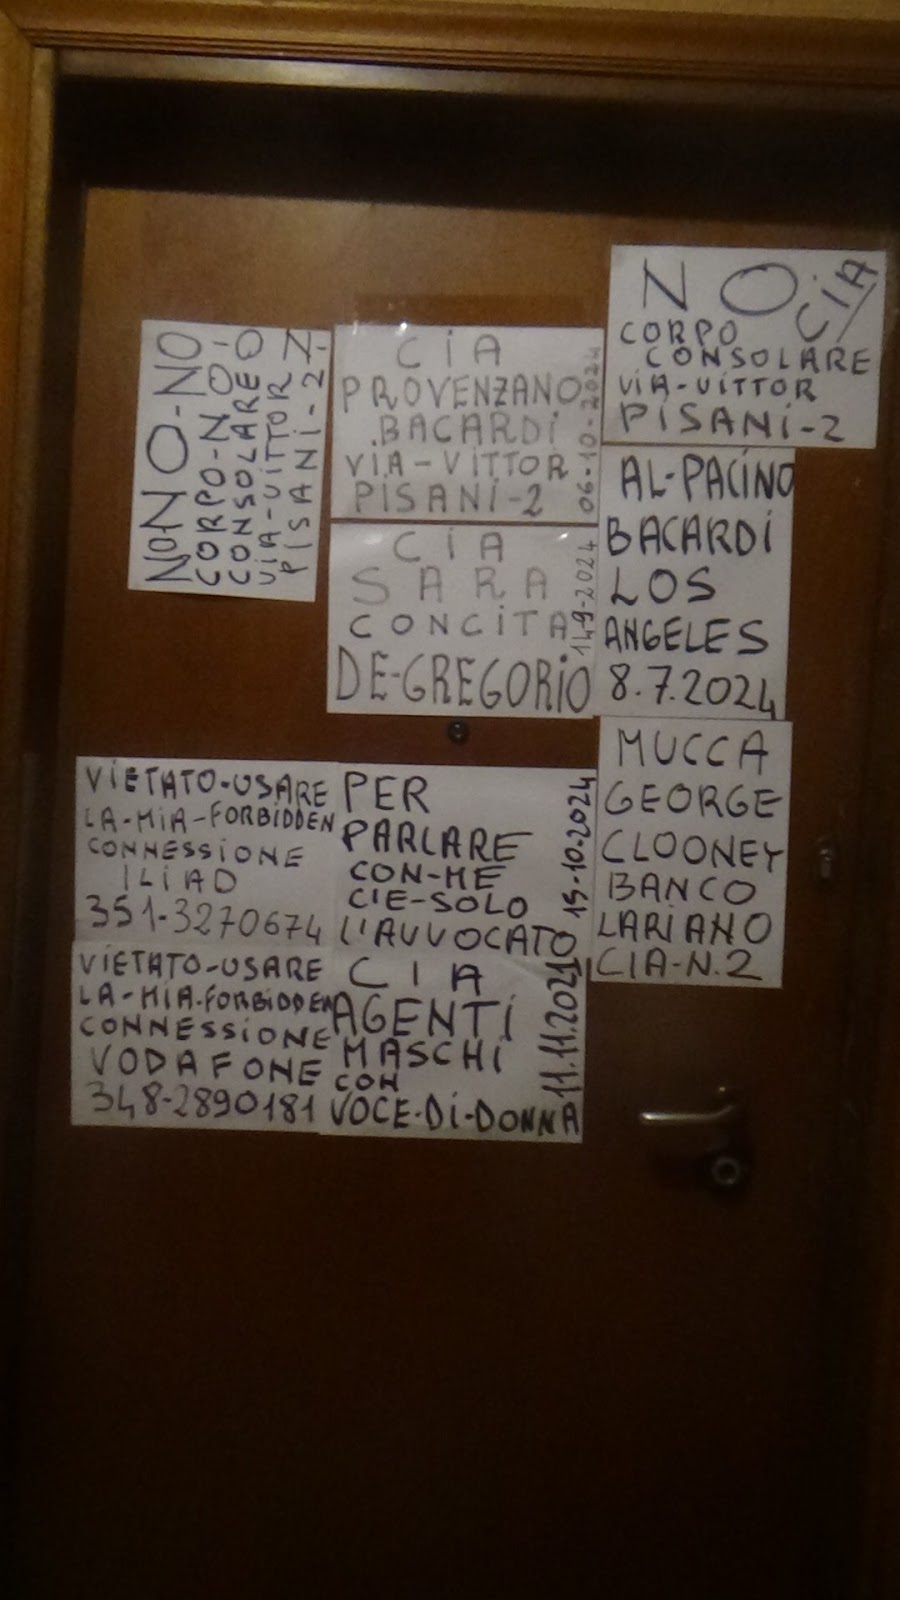 NO-NO-NO
CORPO-NO-
CONSOLARE
VIA-VITTOR
PISANI-2
CIA
PROVENZANO
BACARDI
VIA-VITTOR
PISANI-2
06-10-2024
NO CIA
CORPO
CONSOLARE
VIA-VITTOR
PISANI-2
CIA
SARA
CONCITA
DE-GREGORIO
14-9-2024
AL-PACINO
BACARDI
LOS
ANGELES
8.7.2024
MUCCA
GEORGE
CLOONEY
BANCO
LARIANO
CIA-N.2
VIETATO-USARE
LA-MIA-FORBIDDEN
CONNESSIONE
ILIAD
351-3270674
PER
PARLARE
CON-ME
CIE-SOLO
L'AVVOCATO
15-10-2024
VIETATO-USARE
LA-MIA-FORBIDDEN
CONNESSIONE
VODAFONE
348-2890181
CIA
AGENTI
MASCHI
CON
VOCE-DI-DONNA